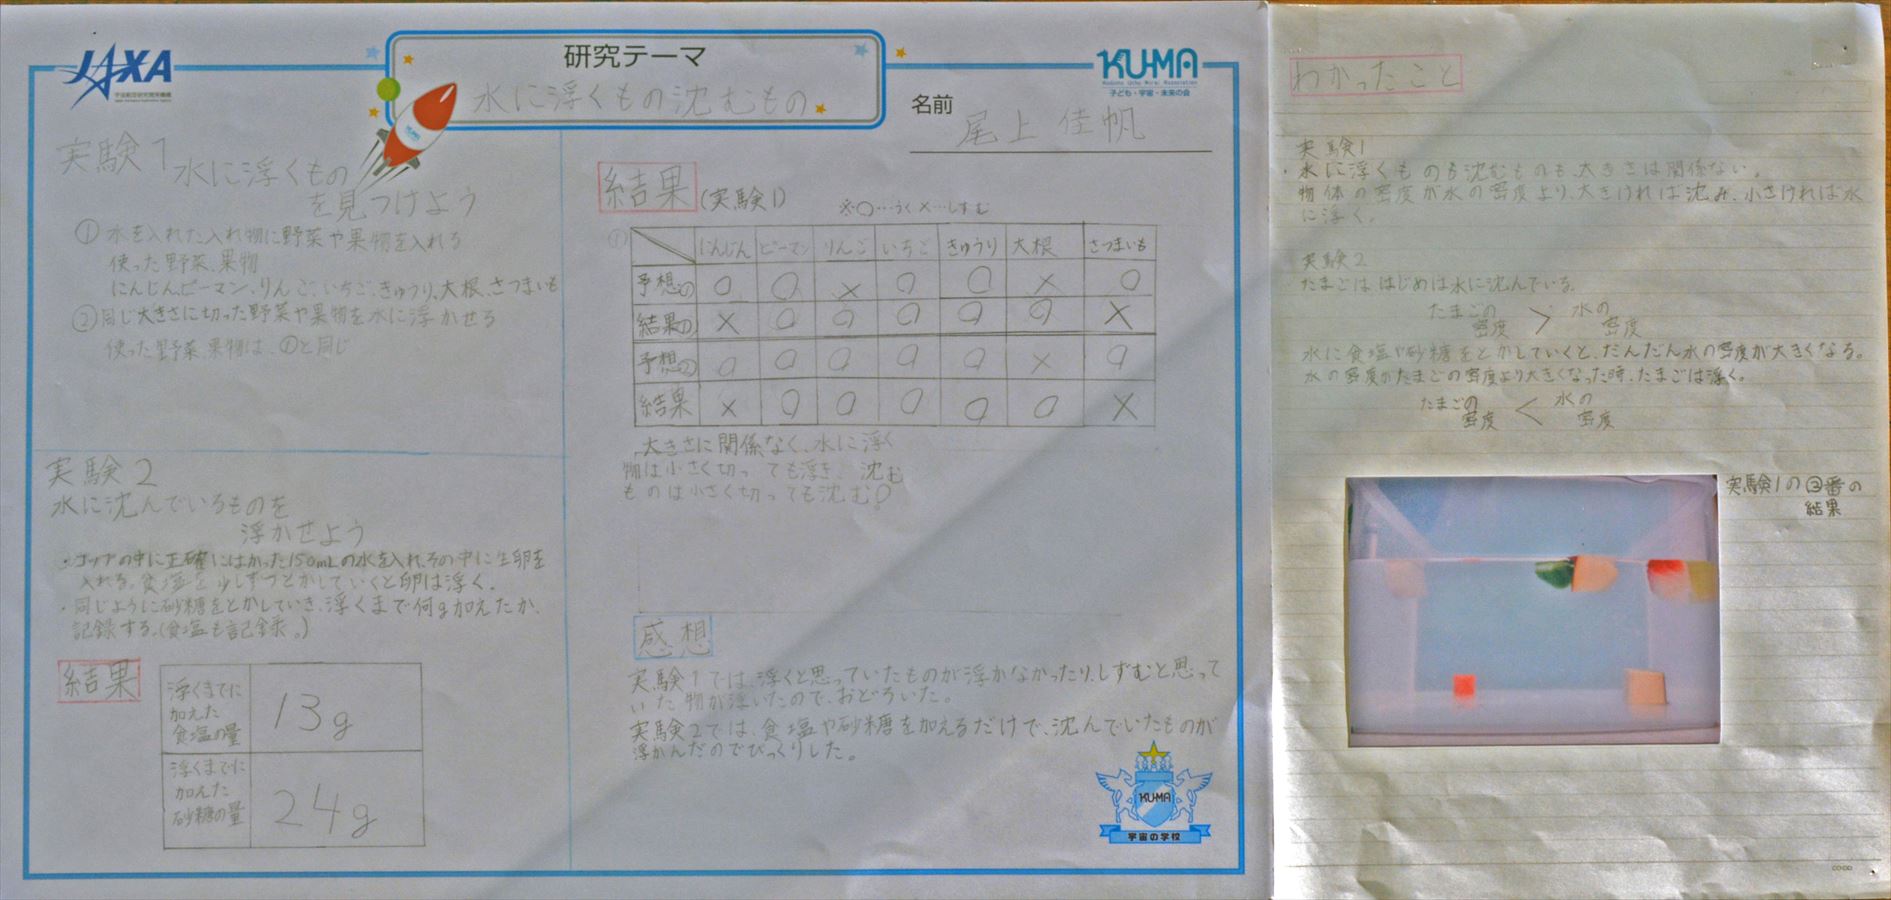 JAXA
宇宙航空研究開発機構
研究テーマ
水に浮くもの沈むもの
KU-MA
子ども・宇宙・未来の会
名前
尾上 佳帆
実験1 水に浮くもの
を見つけよう
① 水を入れた入れ物に野菜や果物を入れる
使った野菜、果物
にんじん、ピーマン、りんご、いちご、きゅうり、大根、さつまいも
②同じ大きさに切った野菜や果物を水に浮かせる
使った野菜、果物は、①と同じ
実験2
水に沈んでいるものを
浮かせよう
・コップの中に正確にはかった150mLの水を入れ、その中に生卵を
入れる。食塩を少しずつとかしていくと卵は浮く。
・同じように砂糖をとかしていき、浮くまで何g加えたか、
記録する。(食塩も記録。)
結果
浮くまでに
加えた
食塩の量
13g
浮くまでに
加えた
砂糖の量
24g
結果(実験1)
※○…うく ×…しずむ
①
にんじん ピーマン りんご いちご きゅうり 大根 さつまいも
予想① ○ ○ × ○ ○ × ○
結果① × ○ ○ ○ ○ ○ ×
予想② ○ ○ ○ ○ ○ × ○
結果 × ○ ○ ○ ○ ○ ×
大きさに関係なく、水に浮く
物は小さく切っても浮き、沈む
ものは小さく切っても沈む。
感想
実験1では、浮くと思っていたものが浮かなかったり、しずむと思って
いた物が浮いたので、おどろいた。
実験2では、食塩や砂糖を加えるだけで、沈んでいたものが
浮かんだのでびっくりした。
KU-MA
宇宙の学校
わかったこと
実験1
・水に浮くものも沈むものも、大きさは関係ない。
物体の密度が水の密度より、大きければ沈み、小さければ水
に浮く。
実験2
たまごは、はじめは水に沈んでいる。
たまごの密度 > 水の密度
水に食塩や砂糖をとかしていくと、だんだん水の密度が大きくなる。
水の密度がたまごの密度より大きくなった時、たまごは浮く。
たまごの密度 < 水の密度
実験1の②番の
結果